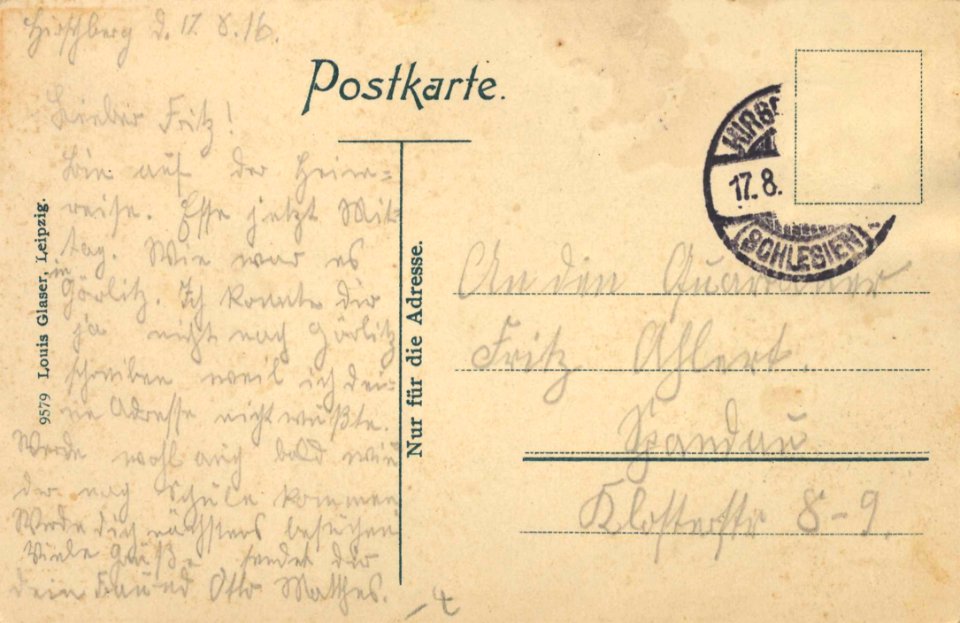 Hirschberg d. 17.8.16.
Postkarte.
Lieber Fritz!
Bin auf der Heim=
reise. Esse jetzt Mit-
tag. Wie war es
in
Görlitz. Ich konnte dir
ja nicht nach Görlitz
schreiben weil ich dei-
ne Adresse nicht wußte.
Werde wohl auch bald wie
der nach Schule kommen
Werde dich nächstens besuchen
Viele Grüße sendet dir
dein Freund Otto Matthes.
9579 Louis Glaser, Leipzig.
Nur für die Adresse.
HIRSC
17.8.
(SCHLESIEN)
An den
Fritz Ahlert.
Spandau
Klosterstr 8-9.